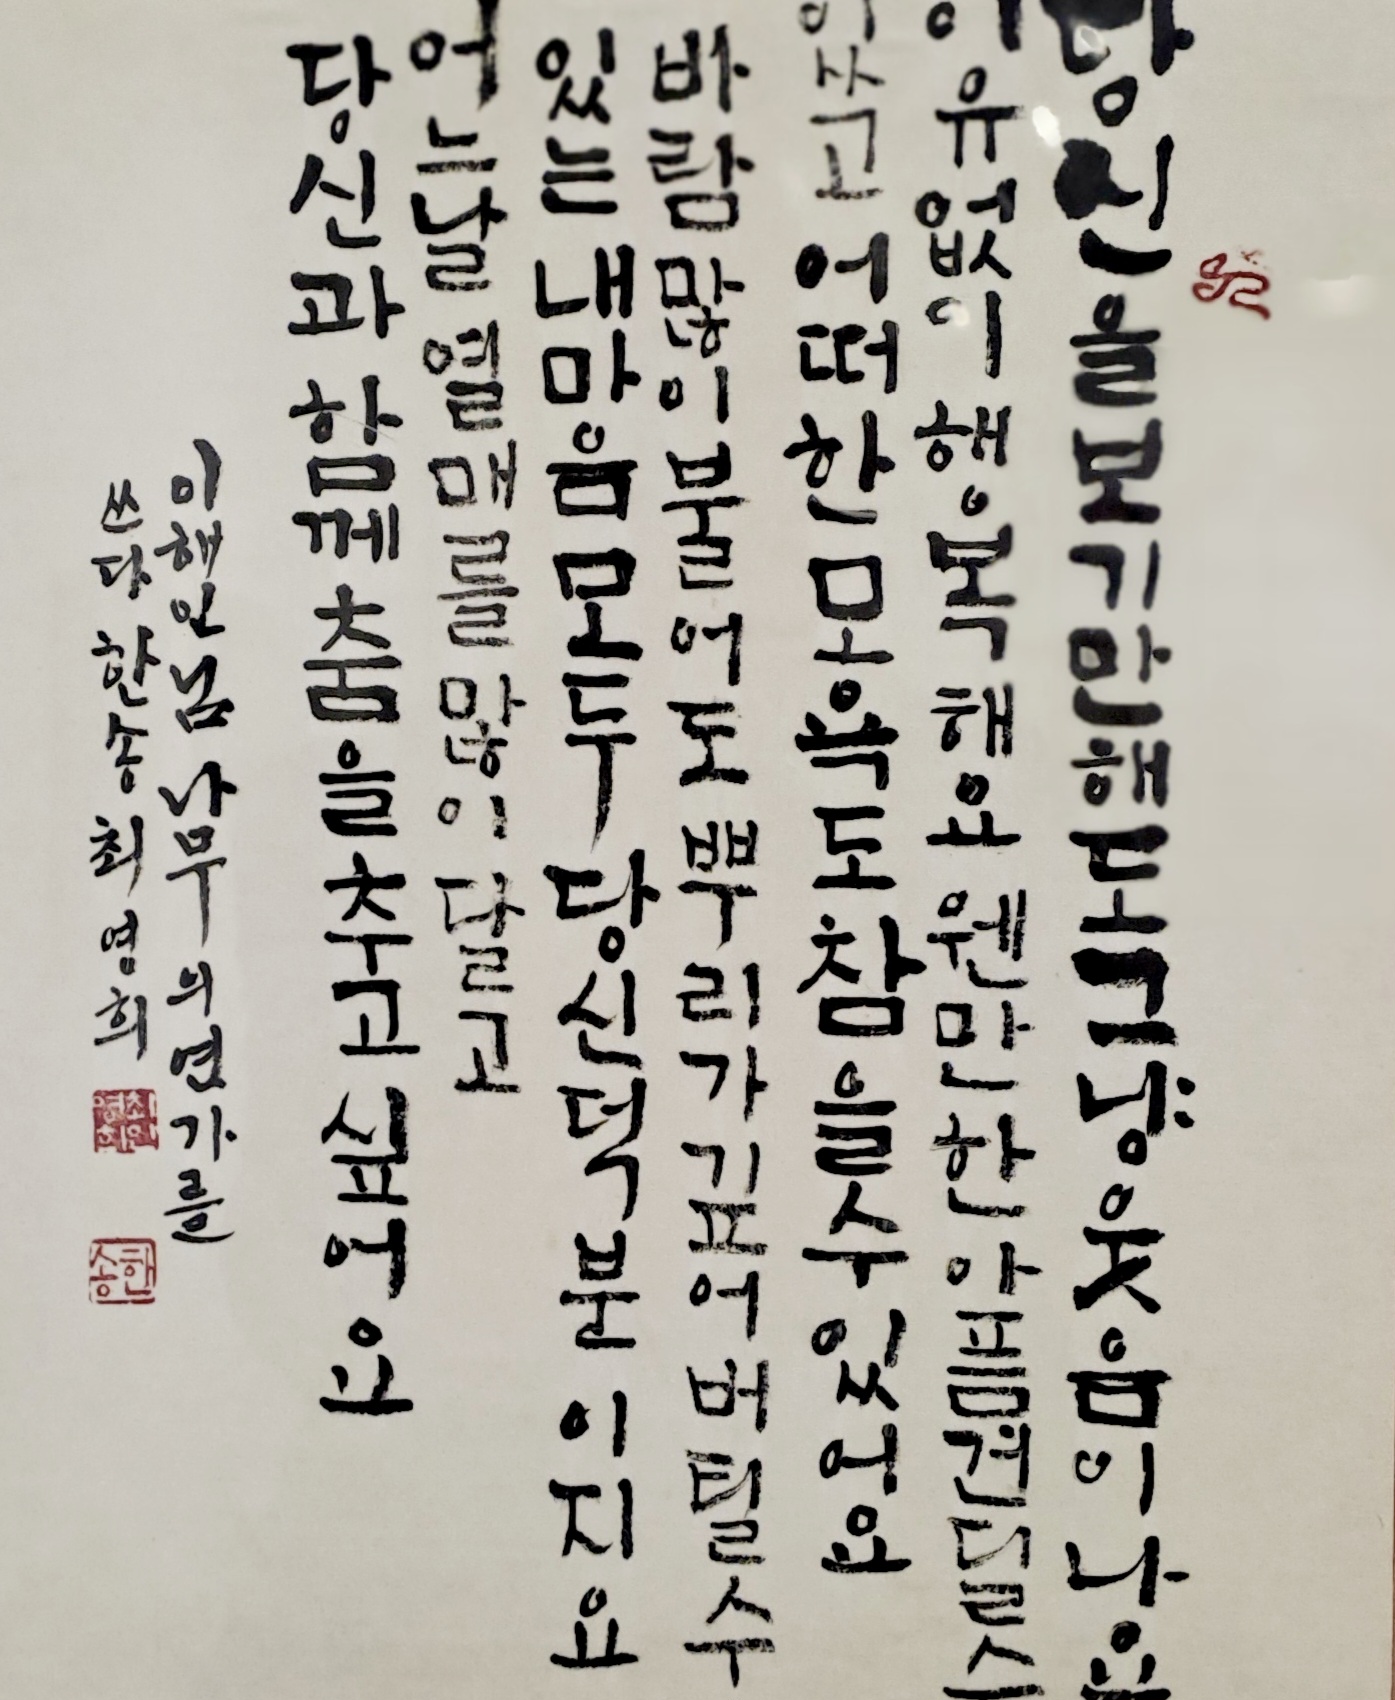 당신을보기만해도그냥웃음이나요
이유없이행복해요웬만한아픔견딜수
있쓰고어떠한모욕도참을수있어요
바람많이불어도뿌리가깊어버틸수
있는내마음모두당신덕분이지요
어느날열매를많이달고
당신과함께춤을추고싶어요
이해인님나무의연가를
쓰다한송최영희
최영희인
한송